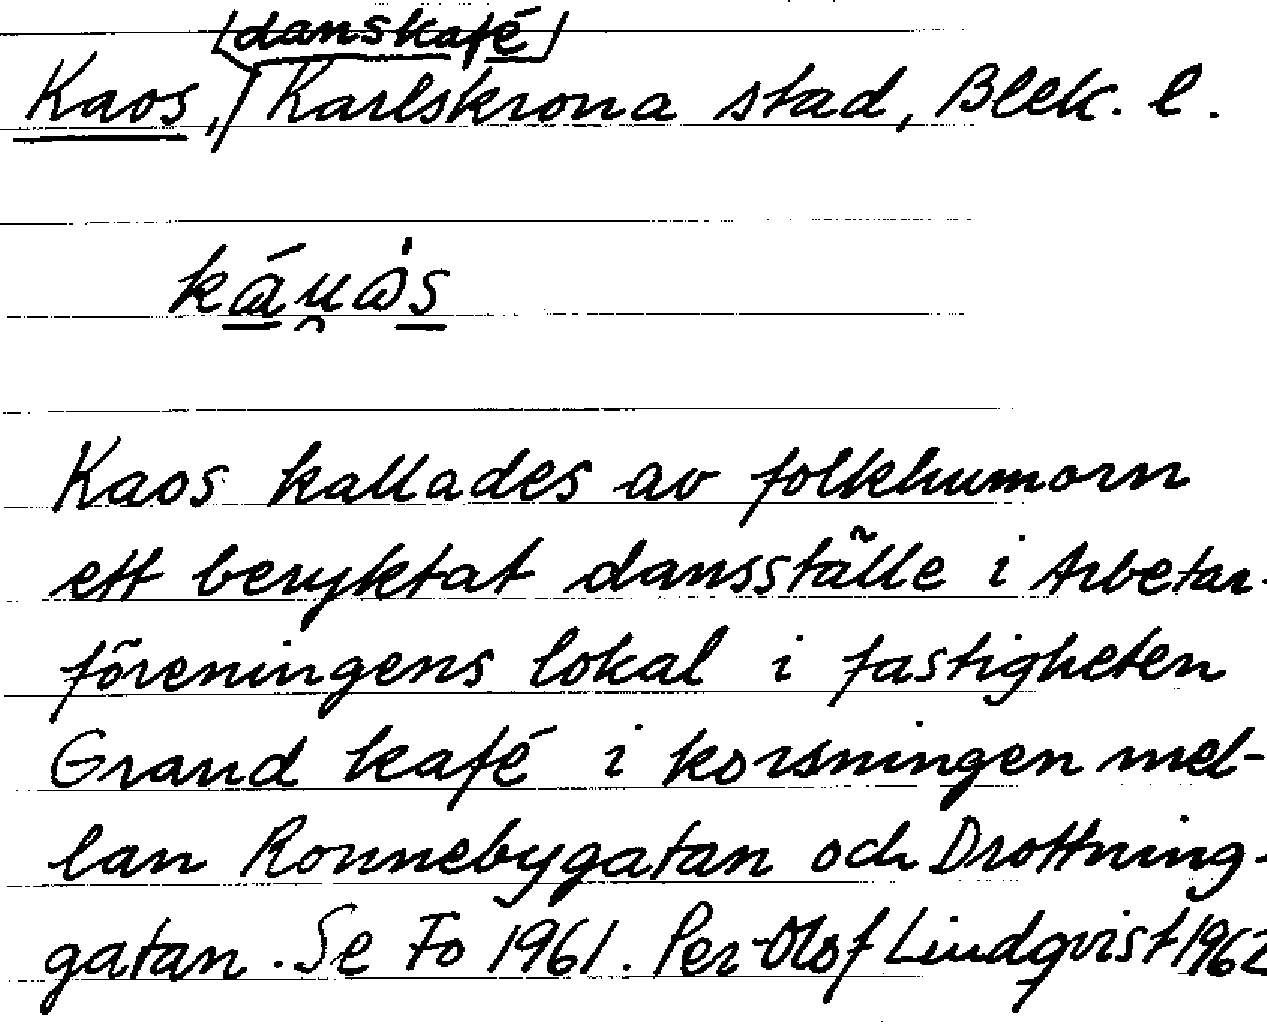 danskafé
Kaos, Karlskrona stad, Blek. l.
Kaos kallades av folkhumorn
ett beryktat dansställe i Arbetar-
föreningens lokal i fastigheten
Grand kafé i korsningen mel-
lan Ronnebygatan och Drottning-
gatan. Se Fo 1961. Per-Olof Lindqvist 1962